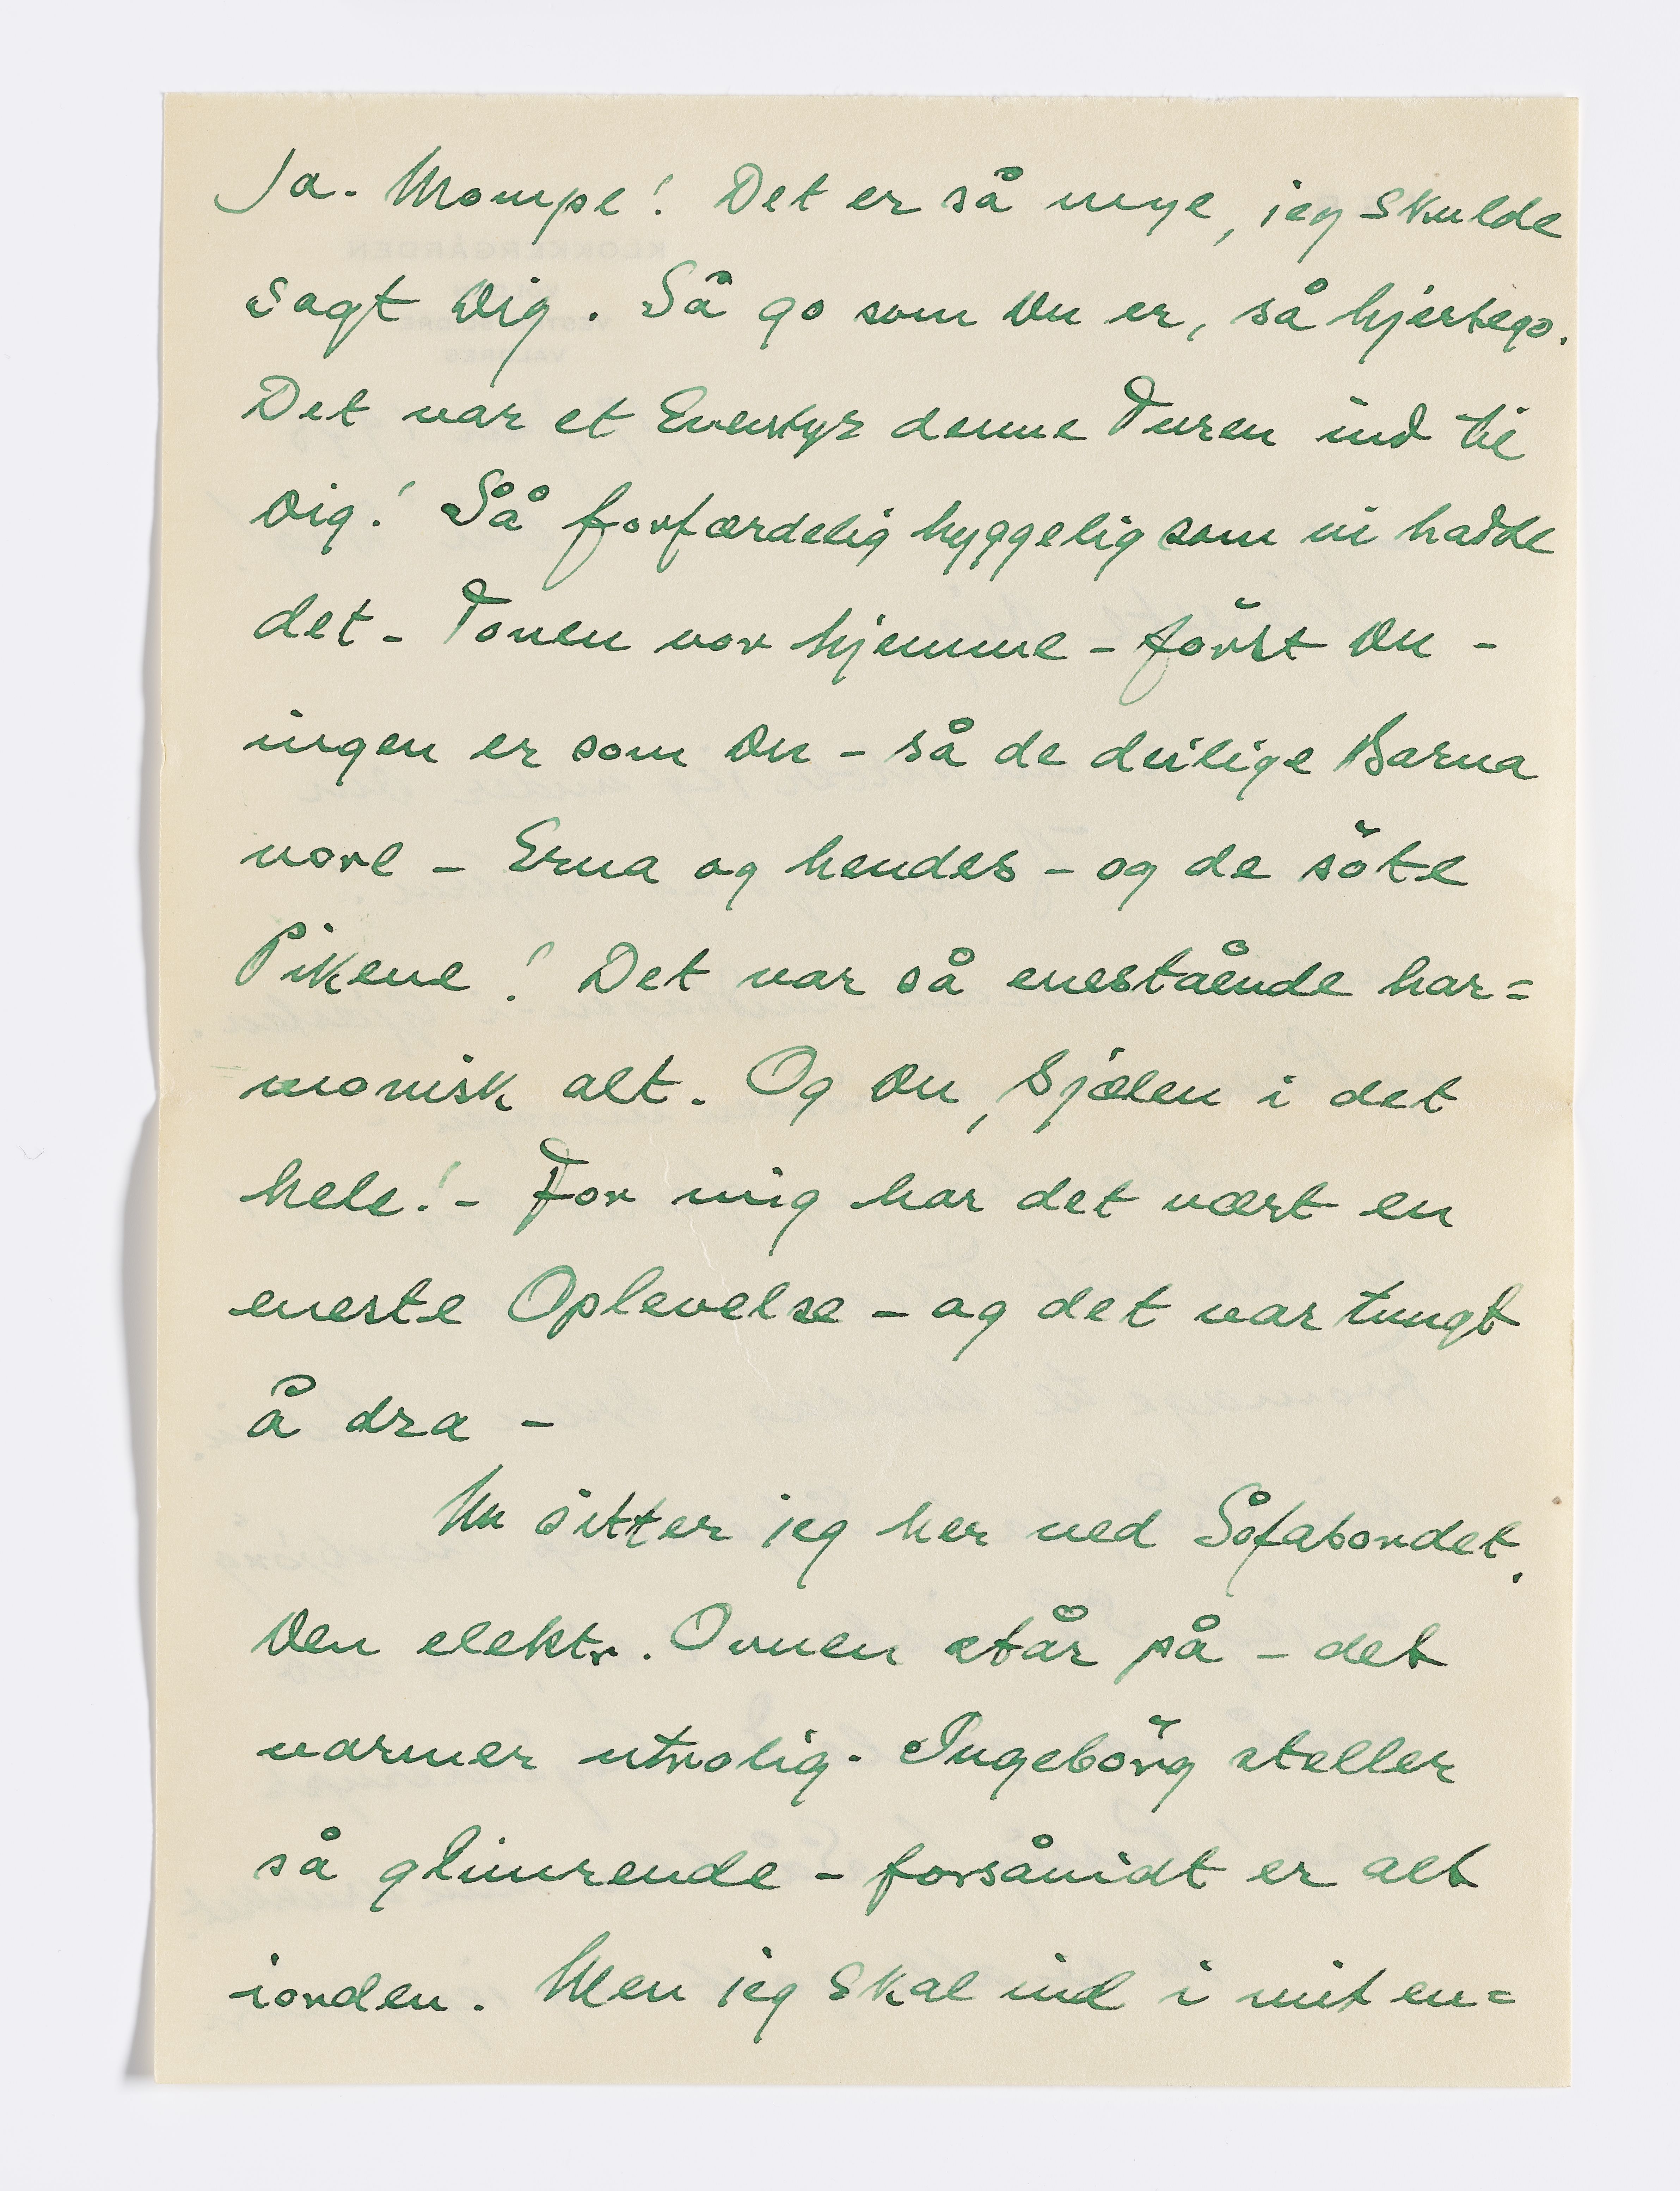 Ja. Mompe! Det er så mye, jeg skulde
sagt Dig. Så go som Du er, så hjertego.
Det var et Eventyr denne Turen ind til
Dig! Så forfærdelig hyggelig som vi hadde
det - Tonen var hjemme - först Du -
ingen er som Du - så de deilige Barna
vore - Erna og hendes - og de söte
Pikene! Det var så enestående har=
monisk alt. Og Du, Sjælen i det
hele! - For mig har det vært en
eneste Oplevelse - og det var tungt
å dra -
Nu sitter jeg her ved Sofabordet.
Den elektr. Ovnen står på - det
varmer utrolig. Ingebörg steller
så glimrende - forsåvidt er alt
iorden. Men jeg skal ind i mit en=